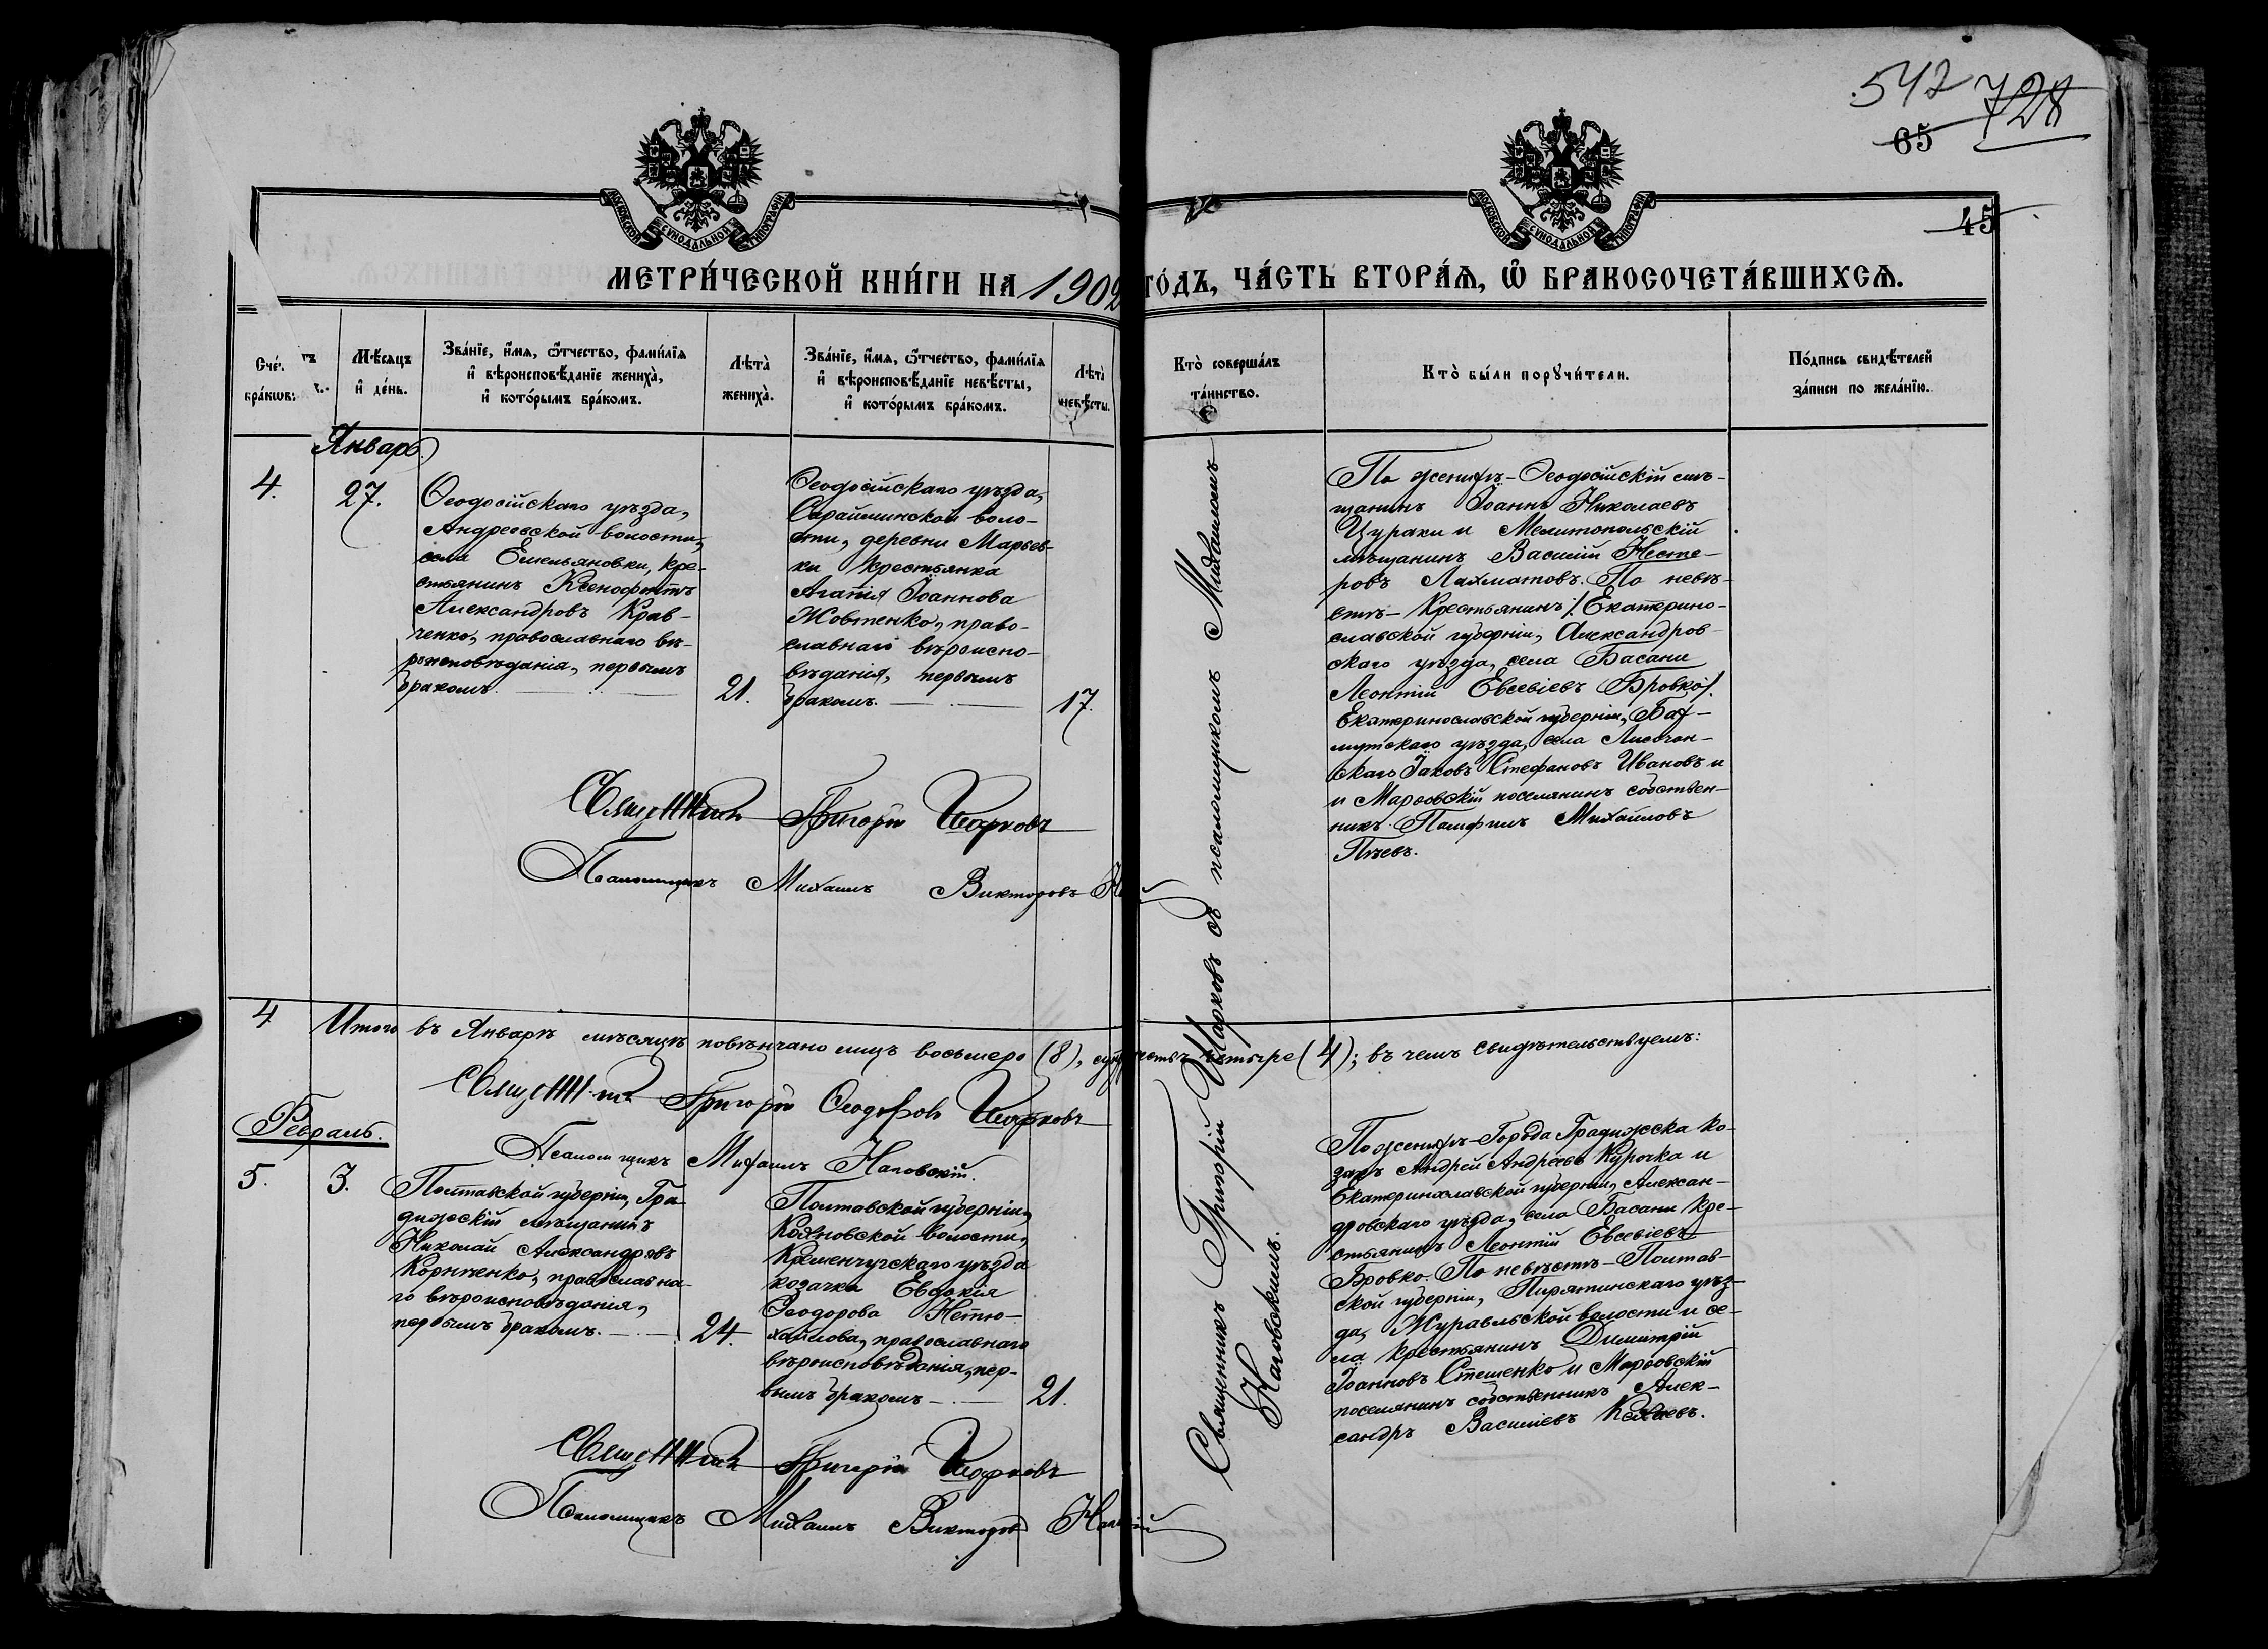 542 728
65
45
МОСКОВСКОЙ СУНОДАЛЬНОЙ ТИПОГРАФІИ
МОСКОВСКОЙ СУНОДАЛЬНОЙ ТИПОГРАФІИ
МЕТРИ́ЧЕСКОЙ КНИ́ГИ НА 1902 ГО́ДЪ, ЧА́СТЬ ВТОРА́Ѧ, Ѡ҆ БРАКОСОЧЕТА́ВШИХСѦ.
Сче́тъ
бра́кѡвъ.
Мѣ́сѧцъ
и҆ де́нь.
Зва́нїе, и҆́мѧ, ѻ҆́тчество, фами́лїѧ
и҆ вѣроисповѣ́данїе жениха̀,
и҆ кото́рымъ бра́комъ.
Лѣ́та̀
жениха̀.
Зва́нїе, и҆́мѧ, ѻ҆́тчество, фами́лїѧ
и҆ вѣроисповѣ́данїе невѣ́сты,
и҆ кото́рымъ бра́комъ.
Лѣ́та̀
невѣ́сты.
Кто̀ соверша́лъ
та́инство.
Кто̀ бы́ли порꙋчи́тели.
По́дпись свидѣ́телей
за́писи по жела́нїю.
Январь
4.
27.
Ѳеодосійскаго уѣзда,
Андреевской волости,
села Емельяновки, кре-
стьянинъ Ксенофонтъ
Александровъ Крав-
ченко, православнаго вѣ-
роисповѣданія, первымъ
бракомъ.
21.
Ѳеодосійскаго уѣзда,
Сарайминской воло-
сти, деревни Марьев-
ки крестьянка
Агапія Іоаннова
Жовтенко, право-
славнаго вѣроиспо-
вѣданія, первымъ
бракомъ.
17.
Священникъ Григорій Шарковъ съ псаломщикомъ Михаиломъ
Наговскимъ.
По женихѣ - Ѳеодосійскій мѣ-
щанинъ Іоаннъ Николаевъ
Цураки и Мелитопольскій
мѣщанинъ Василій Несте-
ровъ Лахматовъ. По невѣ-
стѣ - Крестьянинъ /. Екатерино-
славской губерніи, Александров-
скаго уѣзда, села Басани
Леонтій Евсевіевъ Бровко/.
Екатеринославской губерніи, Бах-
мутскаго уѣзда, села Лисичан-
скаго Іаковъ Стефановъ Ивановъ и
и Марѳовскій поселянинъ собствен-
никъ Памфилъ Михаиловъ
Пѣевъ.
Священникъ Григорій Шарковъ
Псаломщикъ Михаилъ Викторовъ
4
Итого въ Январѣ мѣсяцѣ повѣнчано лицъ восьмеро (8), супружествъ четыре (4); въ чемъ свидѣтельствуемъ:
Священникъ Григорій Ѳеодоровъ Шарковъ
Псаломщикъ Михаилъ Наговскій.
Февраль.
5.
3.
Полтавской губерніи, Гра-
дижскій мѣщанинъ
Николай Александровъ
Корніенко, православна-
го вѣроисповѣданія,
первымъ бракомъ.
24.
Полтавской губерніи,
волости,
Кременчугскаго уѣзда
козачка Евдокія
Ѳеодорова Нетю-
хайлова, православнаго
вѣроисповѣданія, пер-
вымъ бракомъ
21.
По женихѣ - Города Градижска ко-
закъ Андрей Андреевъ Курочка и
Екатеринославской губерніи, Алексан-
дровскаго уѣзда, села Басани кре-
стьянинъ Леонтій Евсевіевъ
Бровко. По невѣстѣ - Полтав-
ской губерніи, Пирятинскаго уѣз-
да, Журавльской волости и се-
ла крестьянинъ Димитрій
Іоанновъ Стешенко и Марѳовскій
поселянинъ собственникъ Алек-
сандръ Василіевъ
Священникъ Григорій Шарковъ
Псаломщикъ Михаилъ Викторовъ